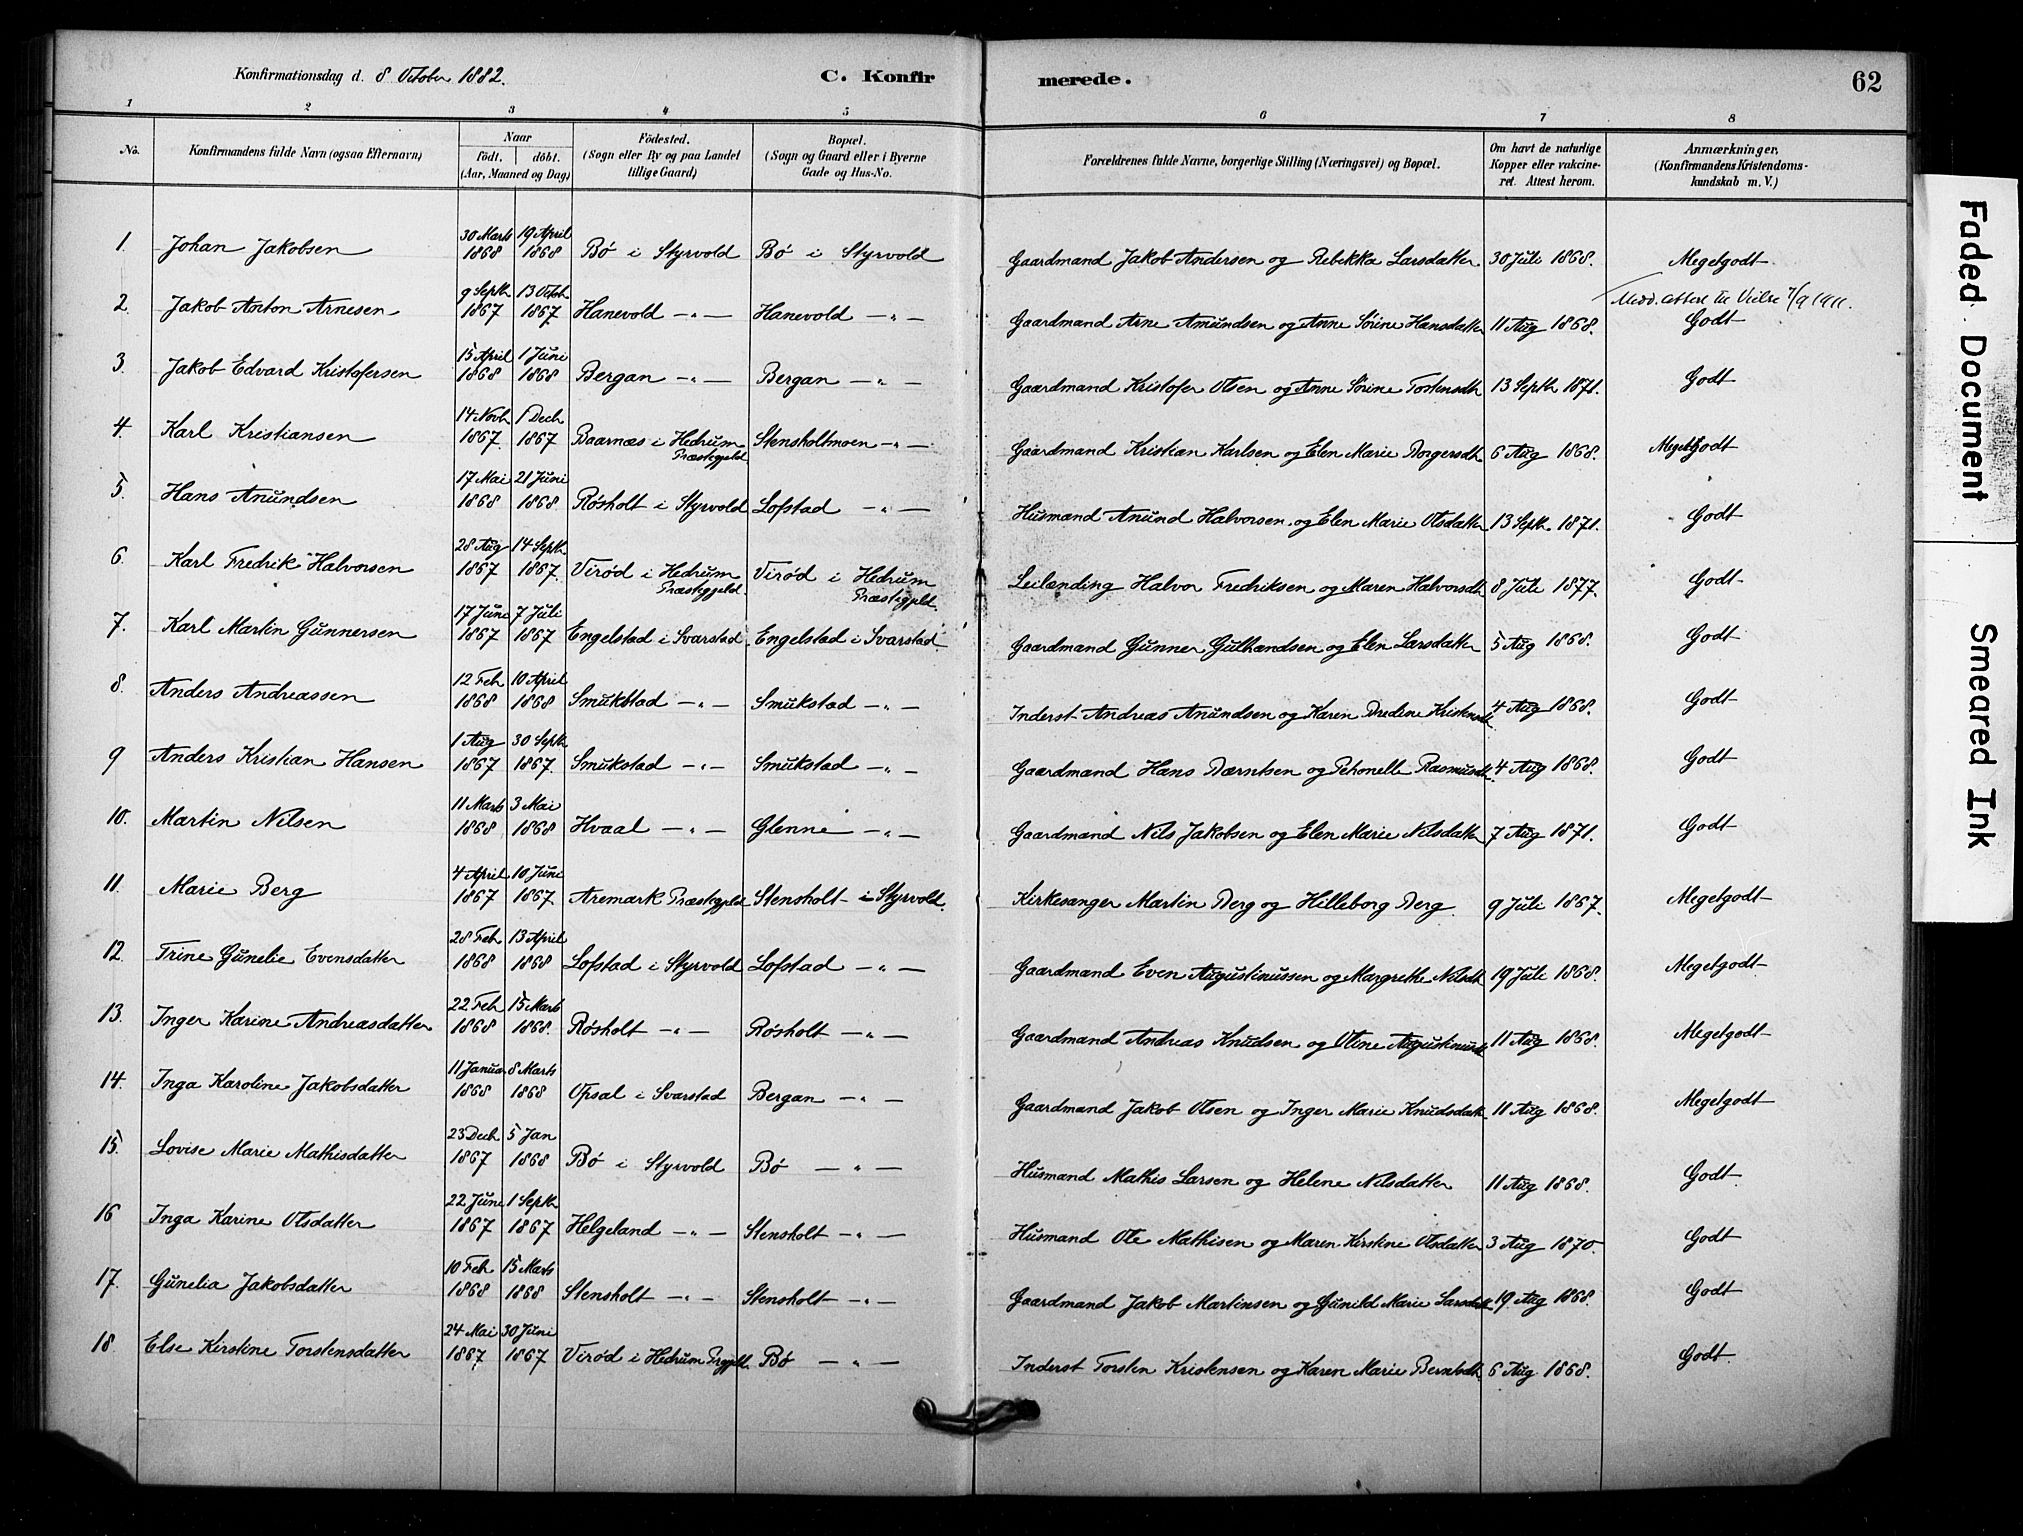 Konfirmationsdag d. 8 October 1882. C. Konfirmerede. 62
1 2 3 4 5 6 7 8
No. Konfirmandens fulde Navn (ogsaa Efternavn) Naar födt. döbt. (Aar, Maaned og Dag) Födested. (Sogn eller By og paa Landet tillige Gaard) Bopæl. (Sogn og Gaard eller i Byerne Gade og Hus-No. Forældrenes fulde Navne, borgerlige Stilling (Næringsvei) og Bopæl. Om havt de naturlige Kopper eller vakcineret. Attest herom. Anmærkninger. (Konfirmandens Kristendomskundskab m. V.)
1. Johan Jakobsen 30 Marts 1868 19 April 1868 Bø i Styrvold Bø i Styrvold Gaardmand Jakob Andersen og Rebekka Larsdatter 30 Juli 1868. Megetgodt
2. Jakob Anton Arnesen 9 Septb 1867 13 Octob 1867 Hanevold -„- Hanevold -„- Gaardmand Arne Amundsen og Anne Sørine Hansdatter 11 Aug 1868. Medd. attest til Vielse 7/9 1911. Godt
3. Jakob Edvard Kristofersen 15 April 1868 1 Juni 1868 Bergan -„- Bergan -„- Gaardmand Kristofer Olsen og Anne Sørine Torstensdtr 13 Septb 1871. Godt
4. Karl Kristiansen 14 Novb 1867 1 Decb 1867 Baarnæs i Hedrum Præstegjeld Stensholtmoen -„- Gaardmand Kristian Karlsen og Elen Marie Borgersdtr 6 Aug 1868. MegetGodt
5. Hans Anundsen 17 Mai 1868 21 Juni 1868 Røsholt i Styrvold Lofstad -„- Husmand Anund Halvorsen og Elen Marie Olsdatter 13 Septb. 1871. Godt
6 Karl Fredrik Halvorsen 28 Aug 1867 14 Septb. 1867. Virød i Hedrum Præstegjeld Virød i Hedrum Præstegjeld. Leilænding Halvor Fredriksen og Maren Halvorsdtr 8 Juli 1877. Godt
7. Karl Martin Gunnersen 17 June 1867 7 Juli 1867 Engelstad i Svarstad Engelstad i Svarstad Gaardmand Gunner Gulbrandsen og Elen Larsdatter 5 Aug 1868. Godt
8. Anders Andreassen 12 Feb 1868 10 April 1868 Smukstad -„- Smukstad -„- Inderst Andreas Anundsen og Karen Bredine Kristensdtr 4 Aug 1868. Godt
9 Anders Kristian Hansen 1 Aug 1867 30 Septb 1867. Smukstad -„- Smukstad -„- Gaardmand Hans Berntsen og Petronelle Rasmusdtr 4 Aug 1868. Godt
10. Martin Nilsen 11 Marts 1868 3 Mai 1868 Hvaal -„- Glenne -„- Gaardmand Nils Jakobsen og Elen Marie Nilsdatter 7 Aug 1871. Godt
11. Marie Berg 4 April 1867 10 Juni 1867 Aremark Præstegjeld Stensholt i Styrvold. Kirkesanger Martin Berg og Hilleborg Berg 9 Juli 1867. Megetgodt
12. Trine Gunelie Evensdatter 28 Feb 1868 13 April 1868 Lofstad i Styrvold Lofstad -„- Gaardmand Even Augustinussen og Margrethe Nilsdtr 19 Juli 1868. Megetgodt
13. Inger Karine Andreasdatter 22 Feb 1868 15 Marts 1868. Røsholt -„- Røsholt -„- Gaardmand Andreas Knudsen og Oline Augustinusdtr 11 Aug 1868. Megetgodt
14. Inga Karoline Jakobsdatter 11 Januar 1868 8 Marts 1868 Opsal i Svarstad Bergan -„- Gaardmand Jakob Olsen og Inger Marie Knudsdatter 11 Aug 1868. Megetgodt
15. Lovise Marie Mathisdatter 23 Decb 1867 5 Jan 1868 Bø i Styrvold Bø -„- Husmand Mathis Larsen og Helene Nilsdatter 11 Aug 1868. Godt
16 Inga Karine Olsdatter 22 June 1867 1 Septb 1867 Helgeland -„- Stensholt -„- Husmand Ole Mathisen og Maren Kirstine Olsdatter 3 Aug 1870. Godt
17. Gunelia Jakobsdatter 10 Feb 1868 15 Marts 1868 Stensholt -„- Stensholt -„- Gaardmand Jakob Martinsen og Gunild Marie Larsdatter 19 Aug 1868. Godt
18. Else Kirstine Torstensdatter 24 Mai 1867 30 Juni 1867 Virød i Hedrum Prgjeld. Bø -„- Inderst Torsten Kristensen og Karen Marie Berntsdtr. 6 Aug 1868. Godt.
Faded Document
Smeared Ink